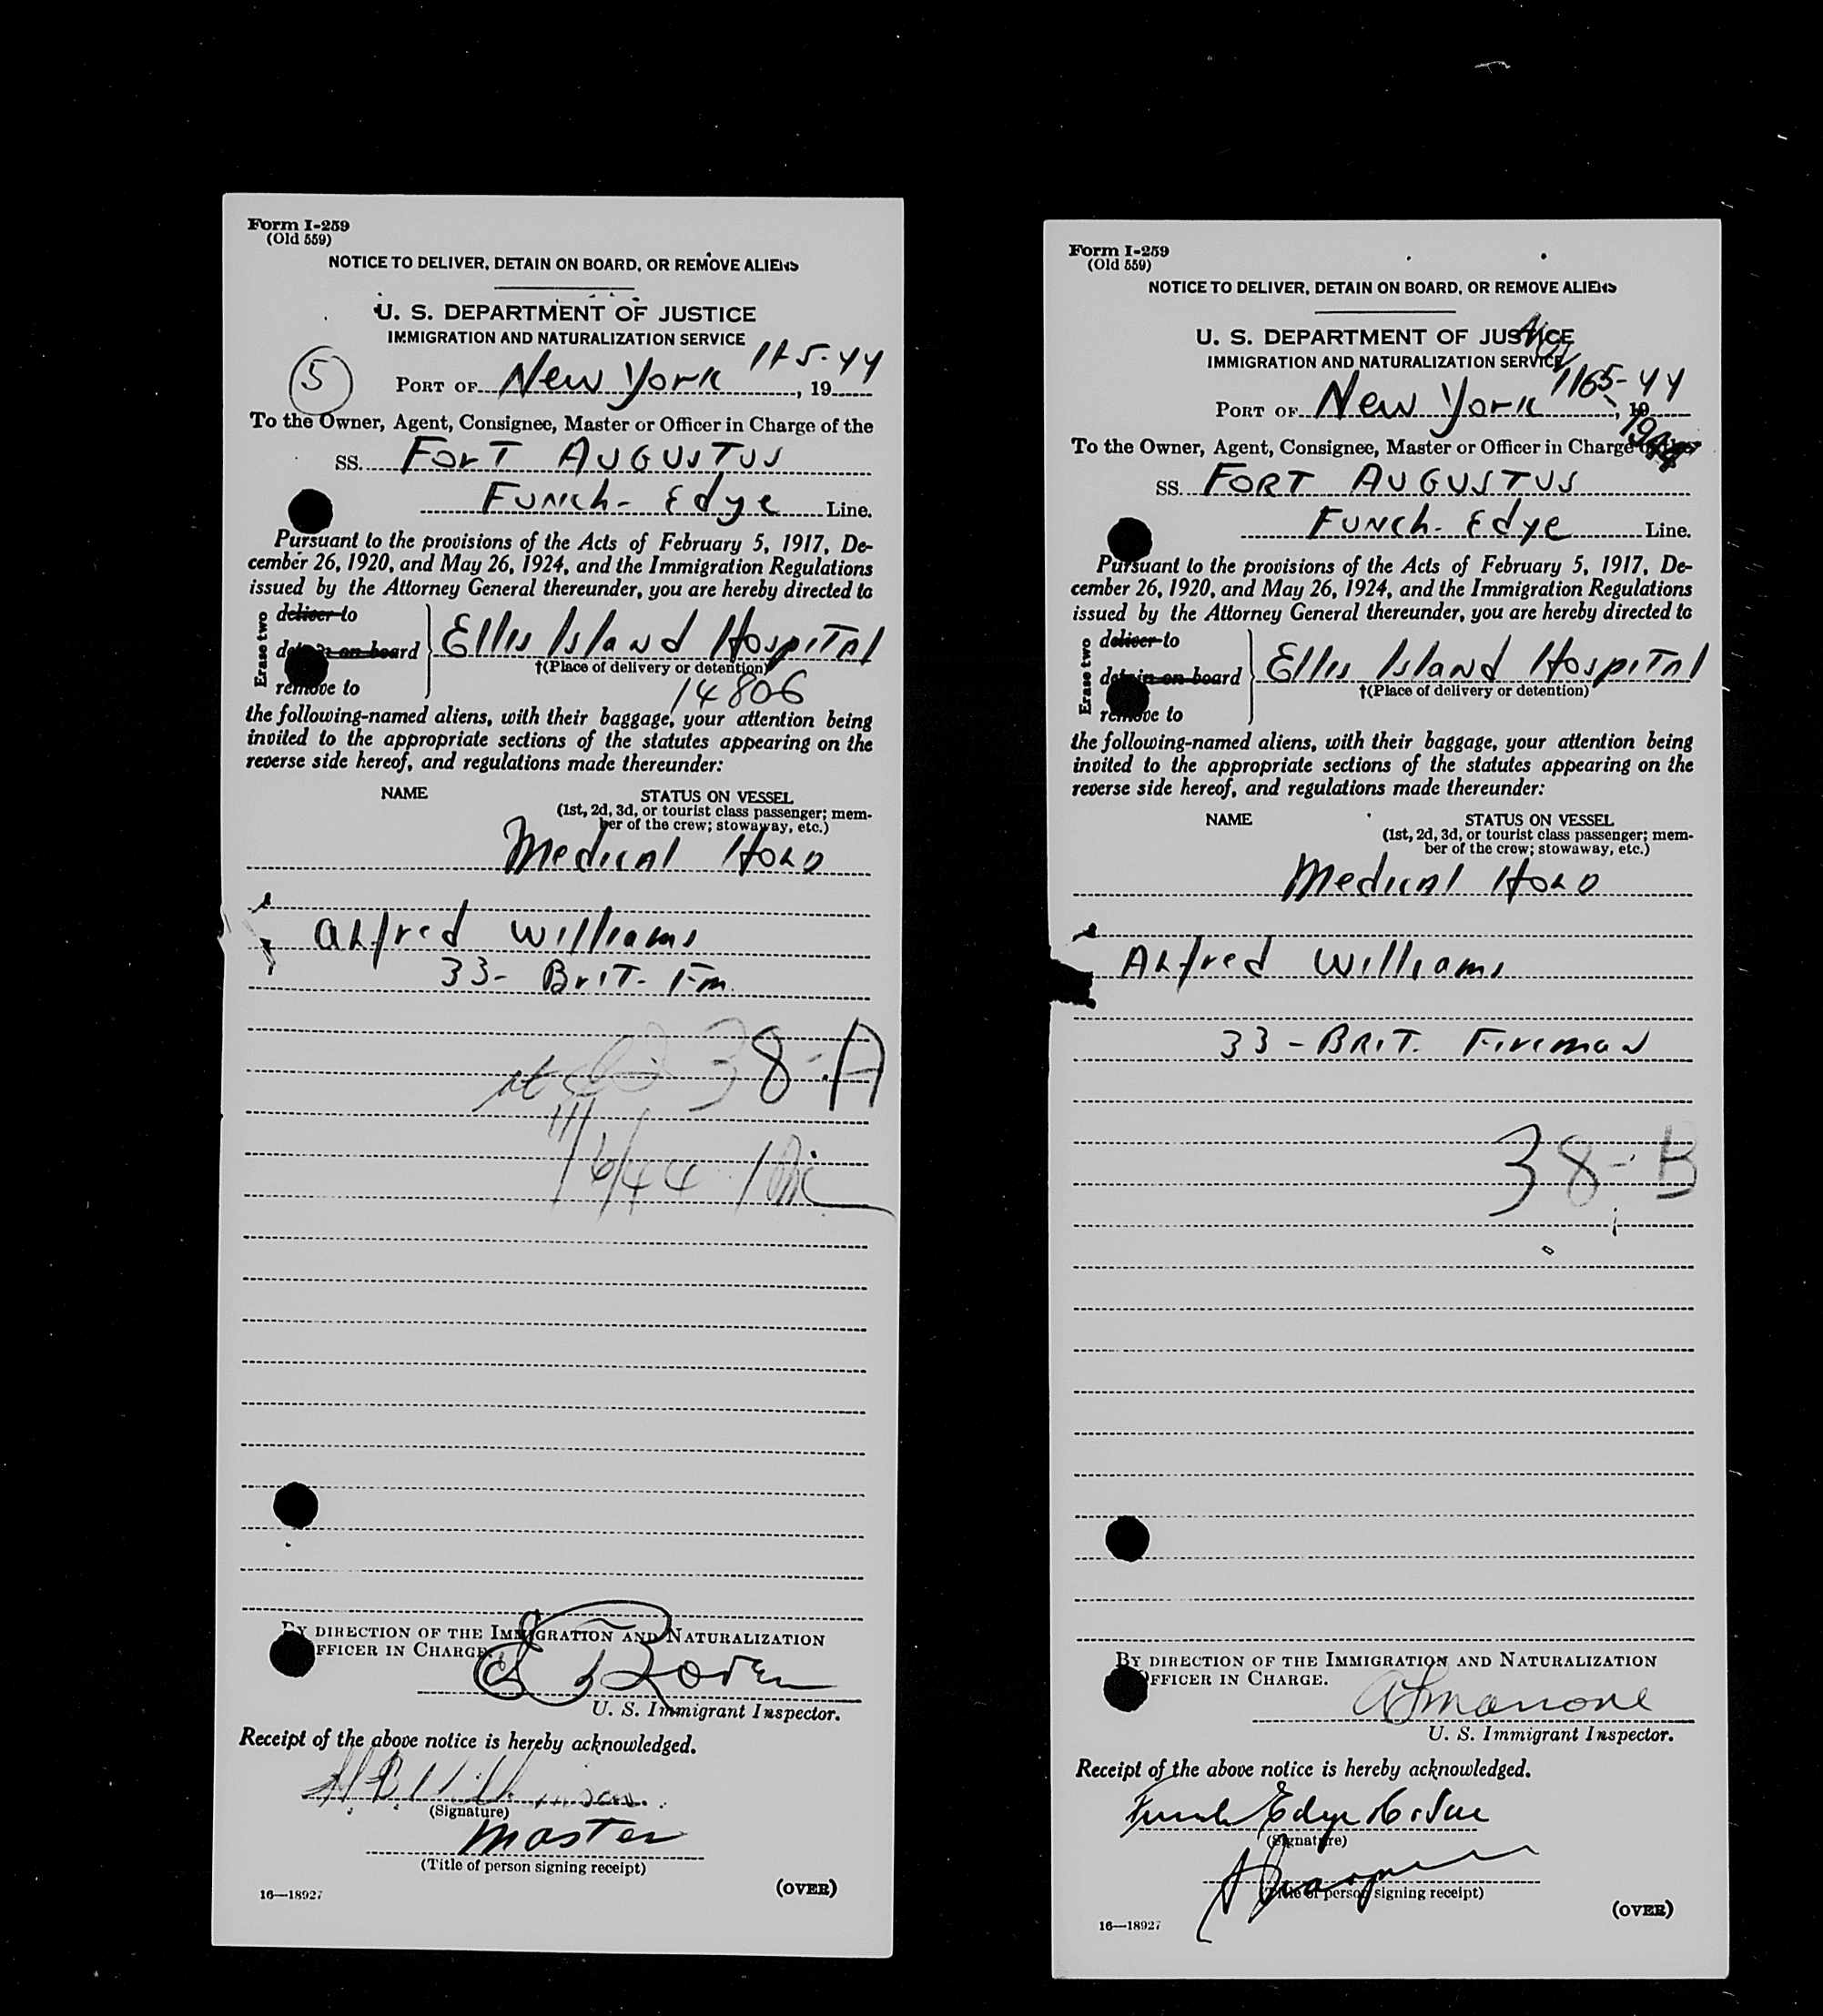 Form I-259
(Old 559)
NOTICE TO DELIVER, DETAIN ON BOARD, OR REMOVE ALIENS
U. S. DEPARTMENT OF JUSTICE
IMMIGRATION AND NATURALIZATION SERVICE
5
11-5-44
PORT OF New York, 19
To the Owner, Agent, Consignee, Master or Officer in Charge of the
SS. ForT AUGUSTUS
FUNch- Edye Line.
Pursuant to the provisions of the Acts of February 5, 1917, De-
cember 26, 1920, and May 26, 1924, and the Immigration Regulations
issued by the Attorney General thereunder, you are hereby directed to
Erase two
deliver to
detain on board
remove to
Ellis Island HospITAl
†(Place of delivery or detention)
14806
the following-named aliens, with their baggage, your attention being
invited to the appropriate sections of the statutes appearing on the
reverse side hereof, and regulations made thereunder:
NAME STATUS ON VESSEL
(1st, 2d, 3d, or tourist class passenger; mem-
ber of the crew; stowaway, etc.)
Medical HOLD
ALfred Williams
33- BrIT- Fm.
38-A
11/6/44
BY DIRECTION OF THE IMMIGRATION AND NATURALIZATION
OFFICER IN CHARGE.
U. S. Immigrant Inspector.
Receipt of the above notice is hereby acknowledged.
(Signature)
Master
(Title of person signing receipt)
16—18927 (OVER)
Form I-259
(Old 559)
NOTICE TO DELIVER, DETAIN ON BOARD, OR REMOVE ALIENS
U. S. DEPARTMENT OF JUSTICE
IMMIGRATION AND NATURALIZATION SERVICE
PORT OF New York, 19
1944
To the Owner, Agent, Consignee, Master or Officer in Charge of the
SS. FORT AUGUSTUS
FUNch- Edye Line.
Pursuant to the provisions of the Acts of February 5, 1917, De-
cember 26, 1920, and May 26, 1924, and the Immigration Regulations
issued by the Attorney General thereunder, you are hereby directed to
Erase two
deliver to
detain on board
remove to
Ellis Island HospITAl
†(Place of delivery or detention)
the following-named aliens, with their baggage, your attention being
invited to the appropriate sections of the statutes appearing on the
reverse side hereof, and regulations made thereunder:
NAME STATUS ON VESSEL
(1st, 2d, 3d, or tourist class passenger; mem-
ber of the crew; stowaway, etc.)
Medical HOLD
ALfred Williams
33 - BRIT. Fireman
38-B
BY DIRECTION OF THE IMMIGRATION AND NATURALIZATION
OFFICER IN CHARGE.
U. S. Immigrant Inspector.
Receipt of the above notice is hereby acknowledged.
Funch Edye & Co. Inc
(Signature)
(Title of person signing receipt)
16—18927 (OVER)